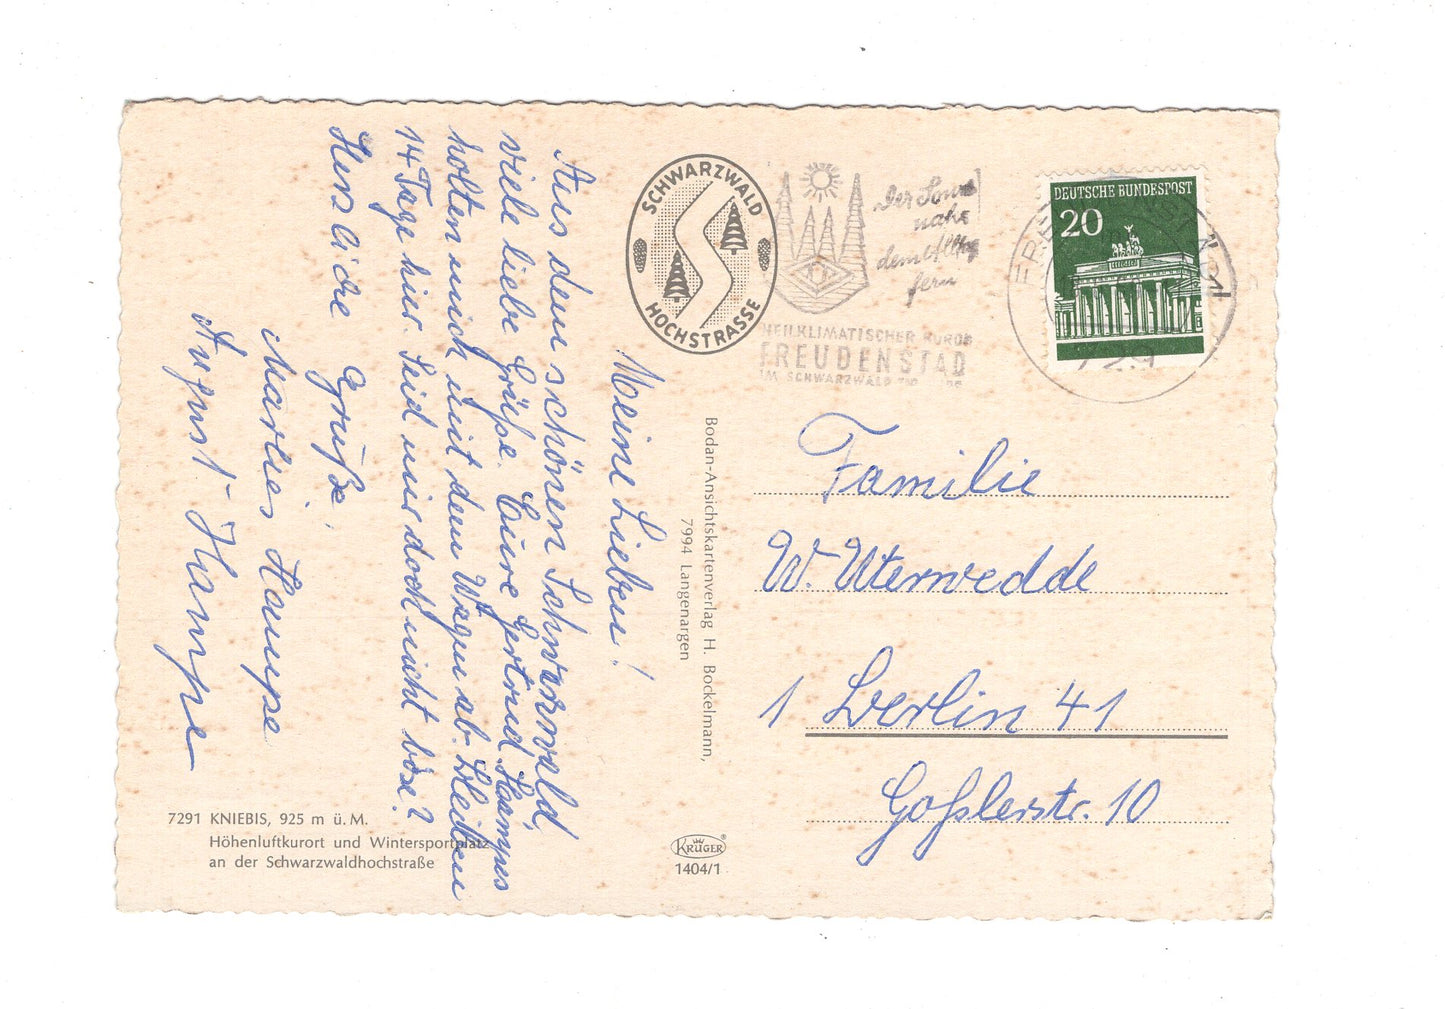 Meine Lieben!
Aus dem schönen Schwarzwald,
viele liebe Grüße. Eure Gertrud. Hampes
holten mich mit dem Wagen ab. Bleiben
14 Tage hier. Seid mir doch nicht böse?
Herzliche Grüße,
Marlies Hampe
August Hampe
7291 KNIEBIS, 925 m ü. M.
Höhenluftkurort und Wintersportplatz
an der Schwarzwaldhochstraße
SCHWARZWALD
HOCHSTRASSE
Bodan-Ansichtskartenverlag H. Bockelmann,
7994 Langenargen
KRÜGER
1404/1
Der Sonne
nahe
dem Alltag
fern
HEILKLIMATISCHER KURORT
FREUDENSTADT
IM SCHWARZWALD
DEUTSCHE BUNDESPOST
20
Familie
W. Uterwedde
1 Berlin 41
Goßlerstr. 10